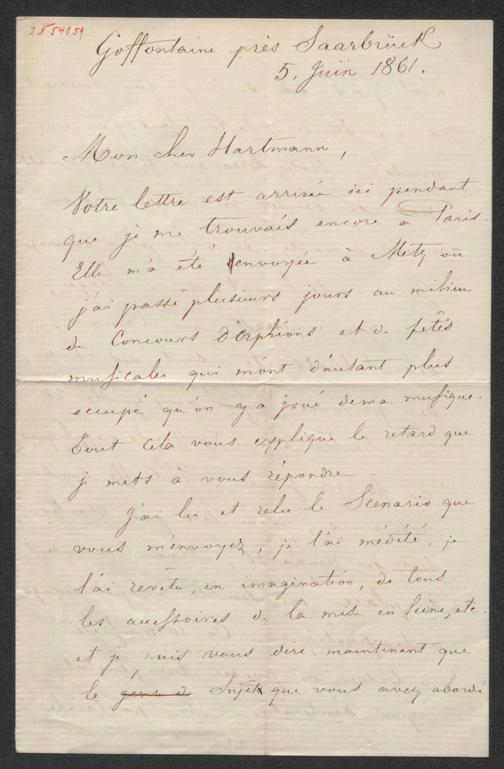 I.N. 54059
Goffontaine près Saarbrück
5, Juin 1861.
Mon cher Hartmann,
Votre lettre est arrivée ici pendant
que je me trouvais encore à Paris.
Elle m'a été envoyée à Metz où
j'ai passé plusieurs jours au milieu
de Concours d'orphéons et de fêtes
musicales qui m'ont d'autant plus
occupé qu'on y a joué de ma musique.
Tout cela vous explique le retard que
je mets à vous répondre
J'ai lu et relu le Scenario que
vous m'envoyez, je l'ai médité, je
l'ai revêtu, en imagination, de tous
les accessoires de la mise en Scène, etc.
et je puis vous dire maintenant que
le genre de Sujet que vous avez abordé